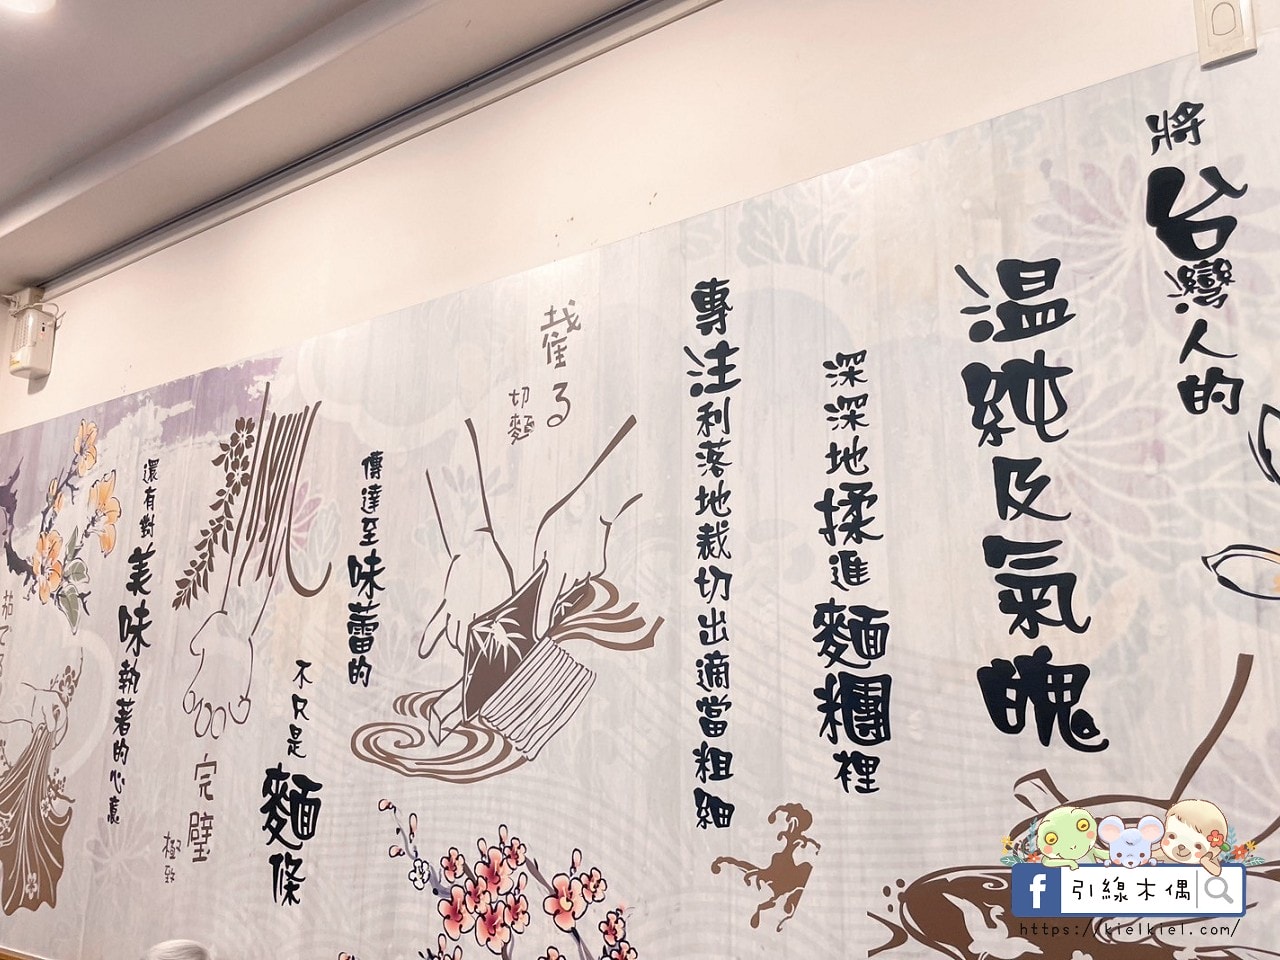 將台灣人的
温純及氣魄
深深地揉進麵糰裡
專注利落地裁切出適當粗細
截る
切麵
傳達至味蕾的
不只是麵條
完璧
極致
還有對美味執著的心意
茹でる
引線木偶
https://kielkiel.com/